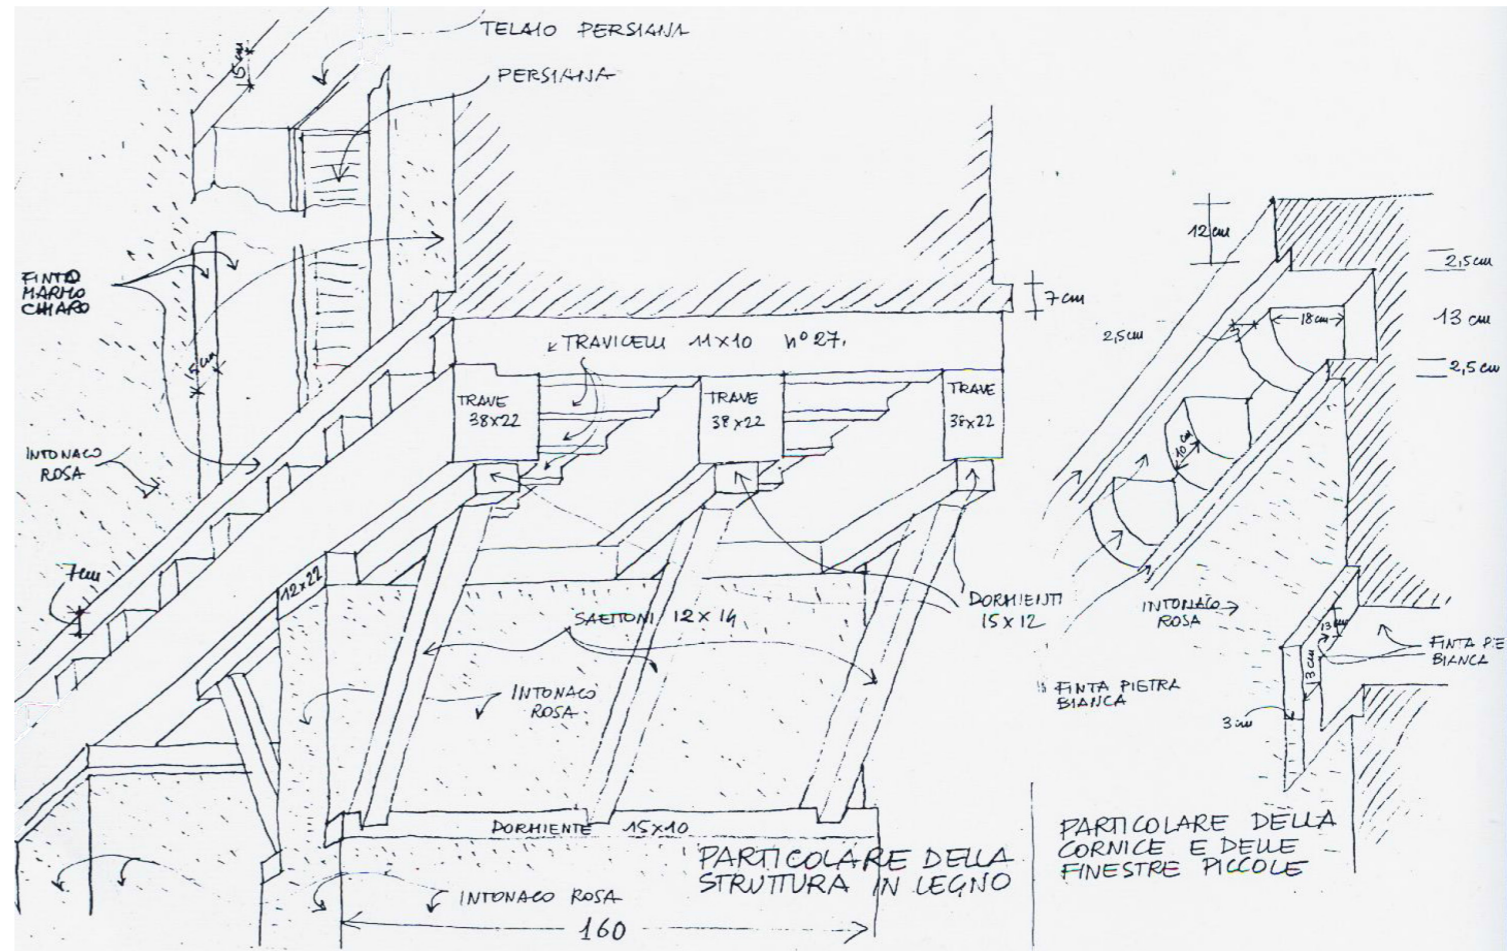 TELAIO PERSIANA
PERSIANA
15 cm
FINTO
MARMO
CHIARO
15 cm
INTONACO
ROSA
7 cm
TRAVICELLI 11×10 n° 27.
7 cm
TRAVE
38×22
TRAVE
38×22
TRAVE
38×22
12×22
SAETTONI 12×14
DORMIENTI
15×12
INTONACO
ROSA
DORMIENTE 15×10
INTONACO ROSA
160
PARTICOLARE DELLA
STRUTTURA IN LEGNO
12 cm
2,5 cm
2,5 cm
18 cm
13 cm
2,5 cm
10 cm
INTONACO
ROSA
13 cm
3 cm
FINTA PIE
BIANCA
FINTA PIETRA
BIANCA
3 cm
PARTICOLARE DELLA
CORNICE E DELLE
FINESTRE PICCOLE